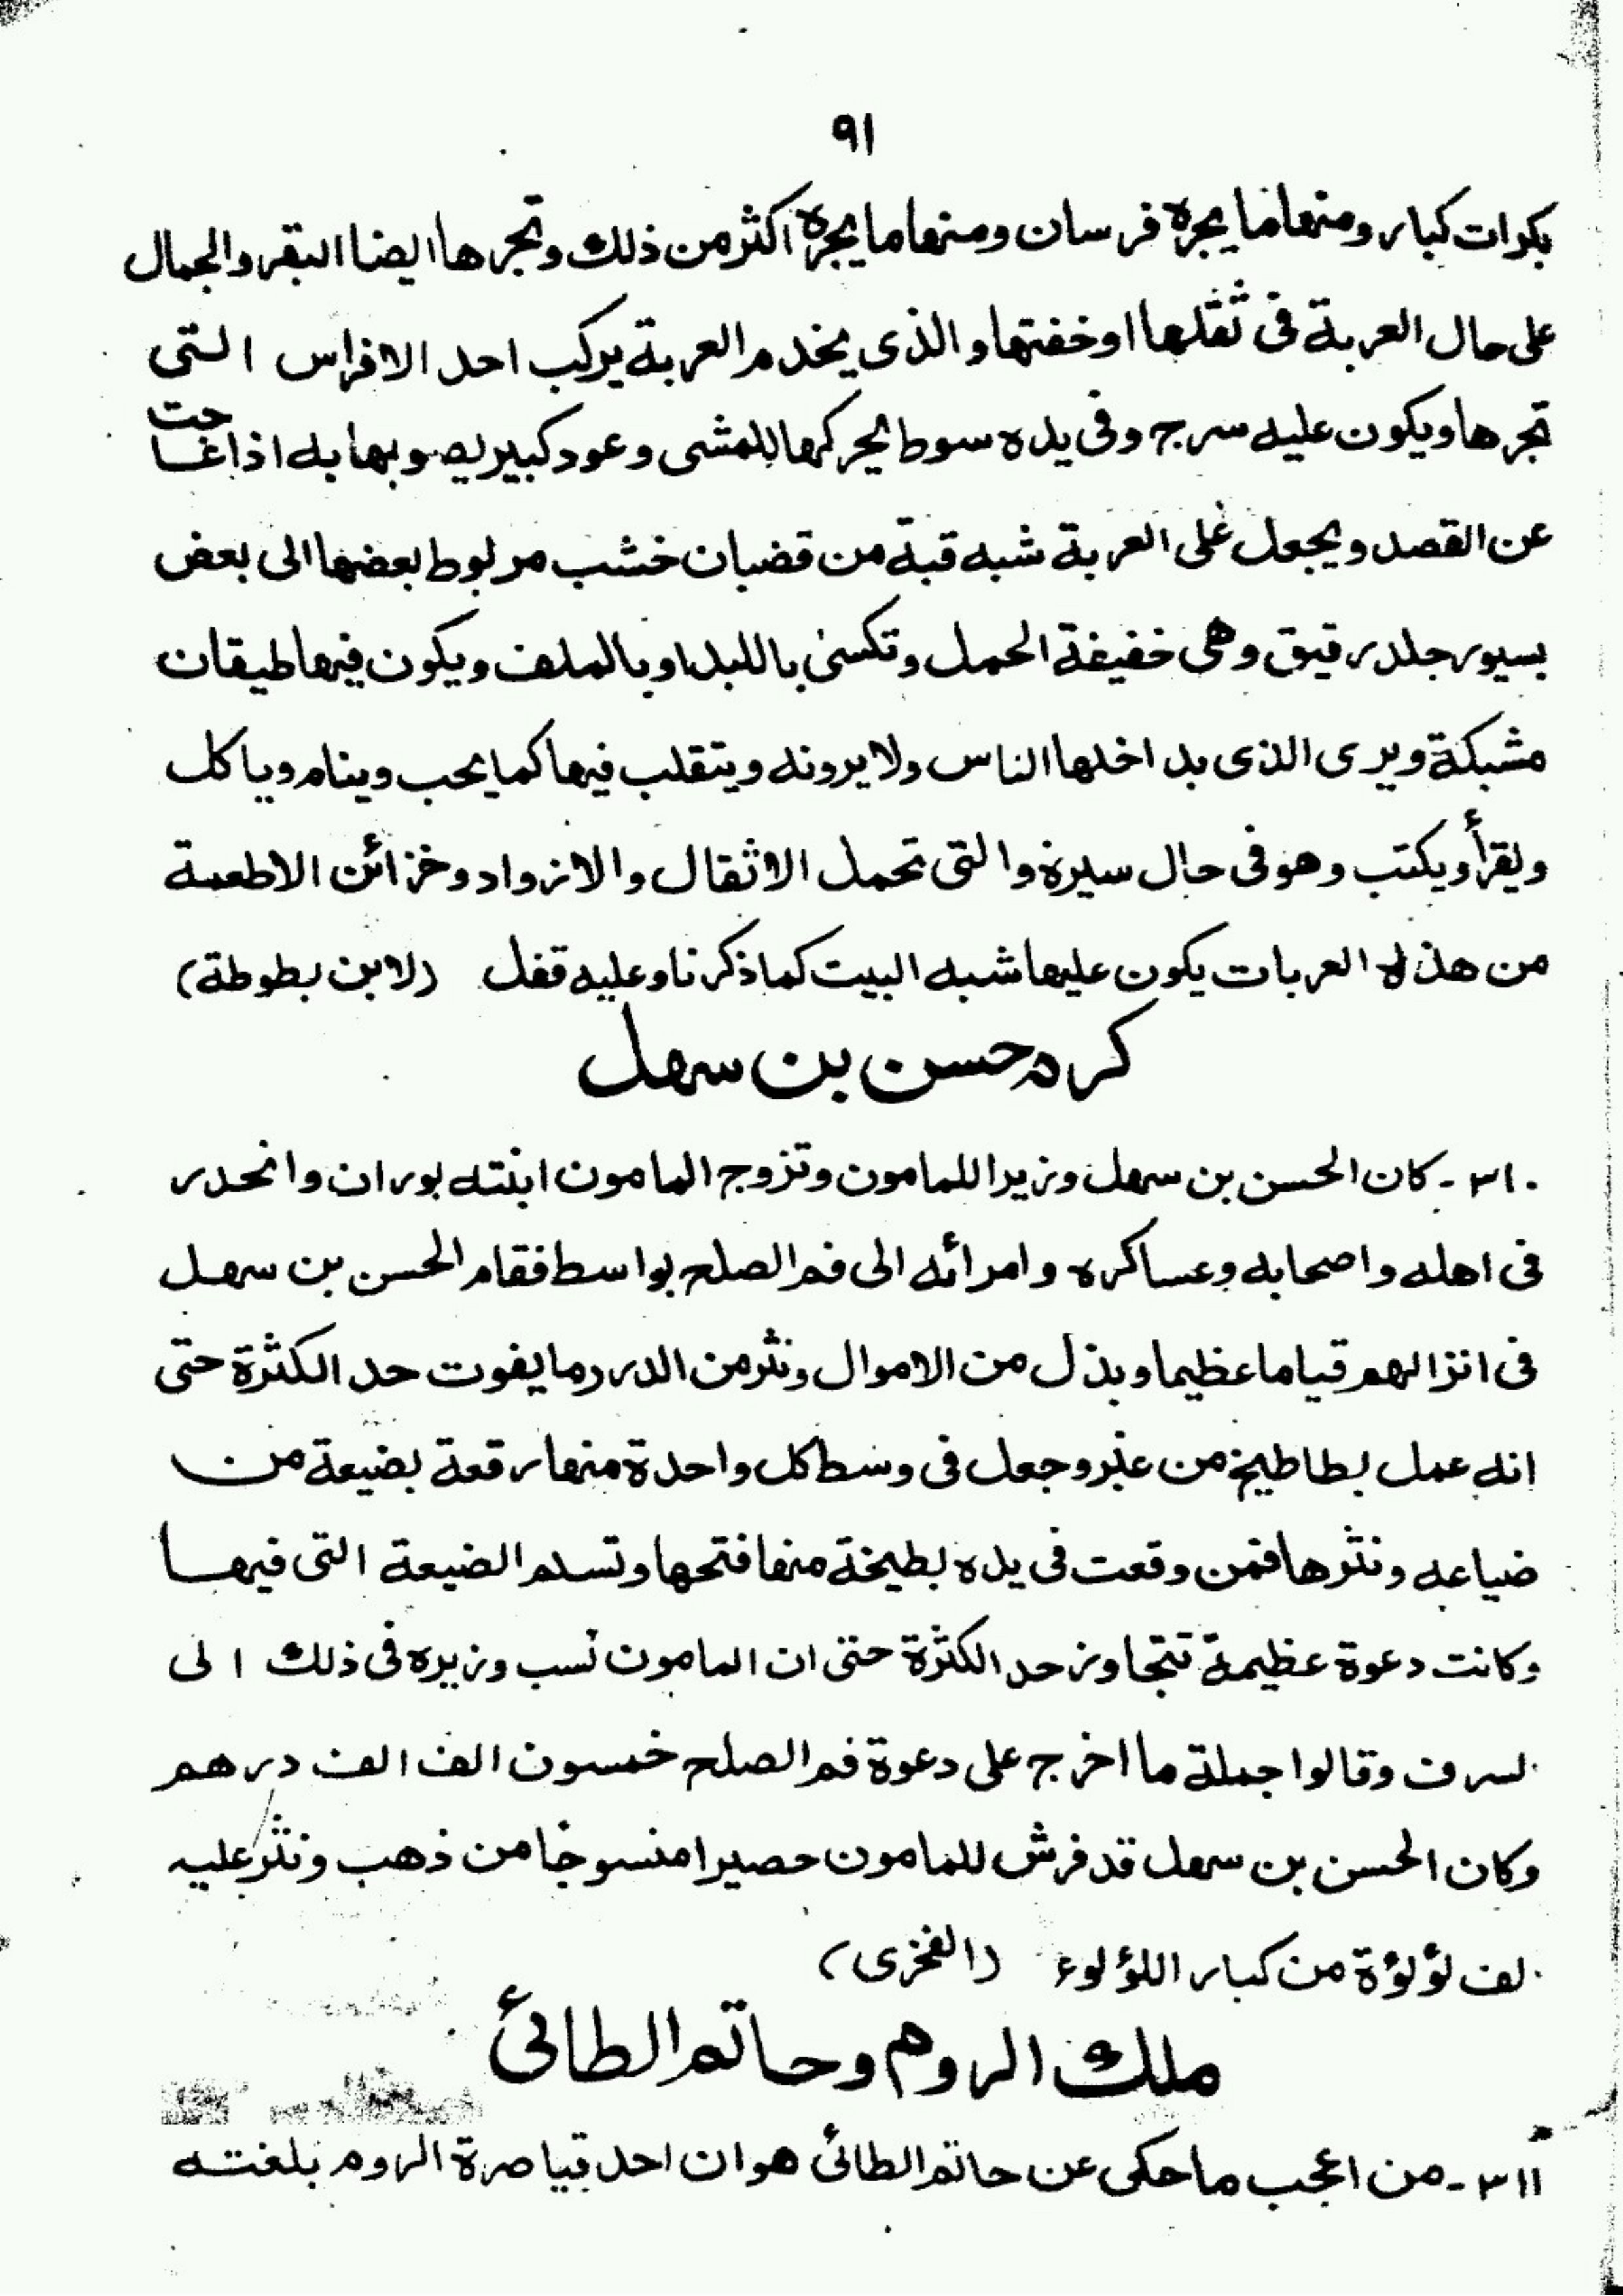 ٩١
بكرات كبار ومنها ما يجره فرسان ومنها ما يجره اكثر من ذلك وتجرها ايضا البقر والجمال
على حال العربة فى ثقلها او خفتها والذى يخدم العربة يركب احد الافراس التى
تجرها ويكون عليه سرج وفى يده سوط يحركها للمشى وعود كبير يصوبها به اذا عاجت
عن القصد ويجعل على العربة شبه قبة من قضبان خشب مربوط بعضها الى بعض
بسيور جلد رقيق وهى خفيفة الحمل وتكسى باللبد او بالملف ويكون فيها طيقان
مشبكة ويرى الذى بداخلها الناس ولا يرونه ويتقلب فيها كما يحب وينام وياكل
ويقرأ ويكتب وهو فى حال سيرة والتى تحمل الاثقال والازواد وخزائن الاطعمة
من هذه العربات يكون عليها شبه البيت كما ذكرنا وعليه قفل (لابن بطوطة)
كرم حسن بن سهل
٣١٠ - كان الحسن بن سهل وزيرا للمامون وتزوج المامون ابنته بوران وانحدر
فى اهله واصحابه وعساكره وامرائه الى فم الصلح بواسط فقام الحسن بن سهل
فى انزالهم قياما عظيما وبذل من الاموال ونثر من الدرر ما يفوت حد الكثرة حتى
انه عمل بطاطيخ من عنبر وجعل فى وسط كل واحدة منها رقعة بضيعة من
ضياعه ونثرها فمن وقعت فى يده بطيخة منها فتحها وتسلم الضيعة التى فيها
وكانت دعوة عظيمة تتجاوز حد الكثرة حتى ان المامون نسب وزيره فى ذلك الى
لسرف وقالوا جملة ما اخرج على دعوة فم الصلح خمسون الف الف درهم
وكان الحسن بن سهل قد فرش للمامون حصيرا منسوجا من ذهب ونثر عليه
لف لؤلؤة من كبار اللؤلوء (الفخرى)
ملك الروم وحاتم الطائئ
٣١١ - من اعجب ما حكى عن حاتم الطائئ هو ان احد قياصرة الروم بلغته